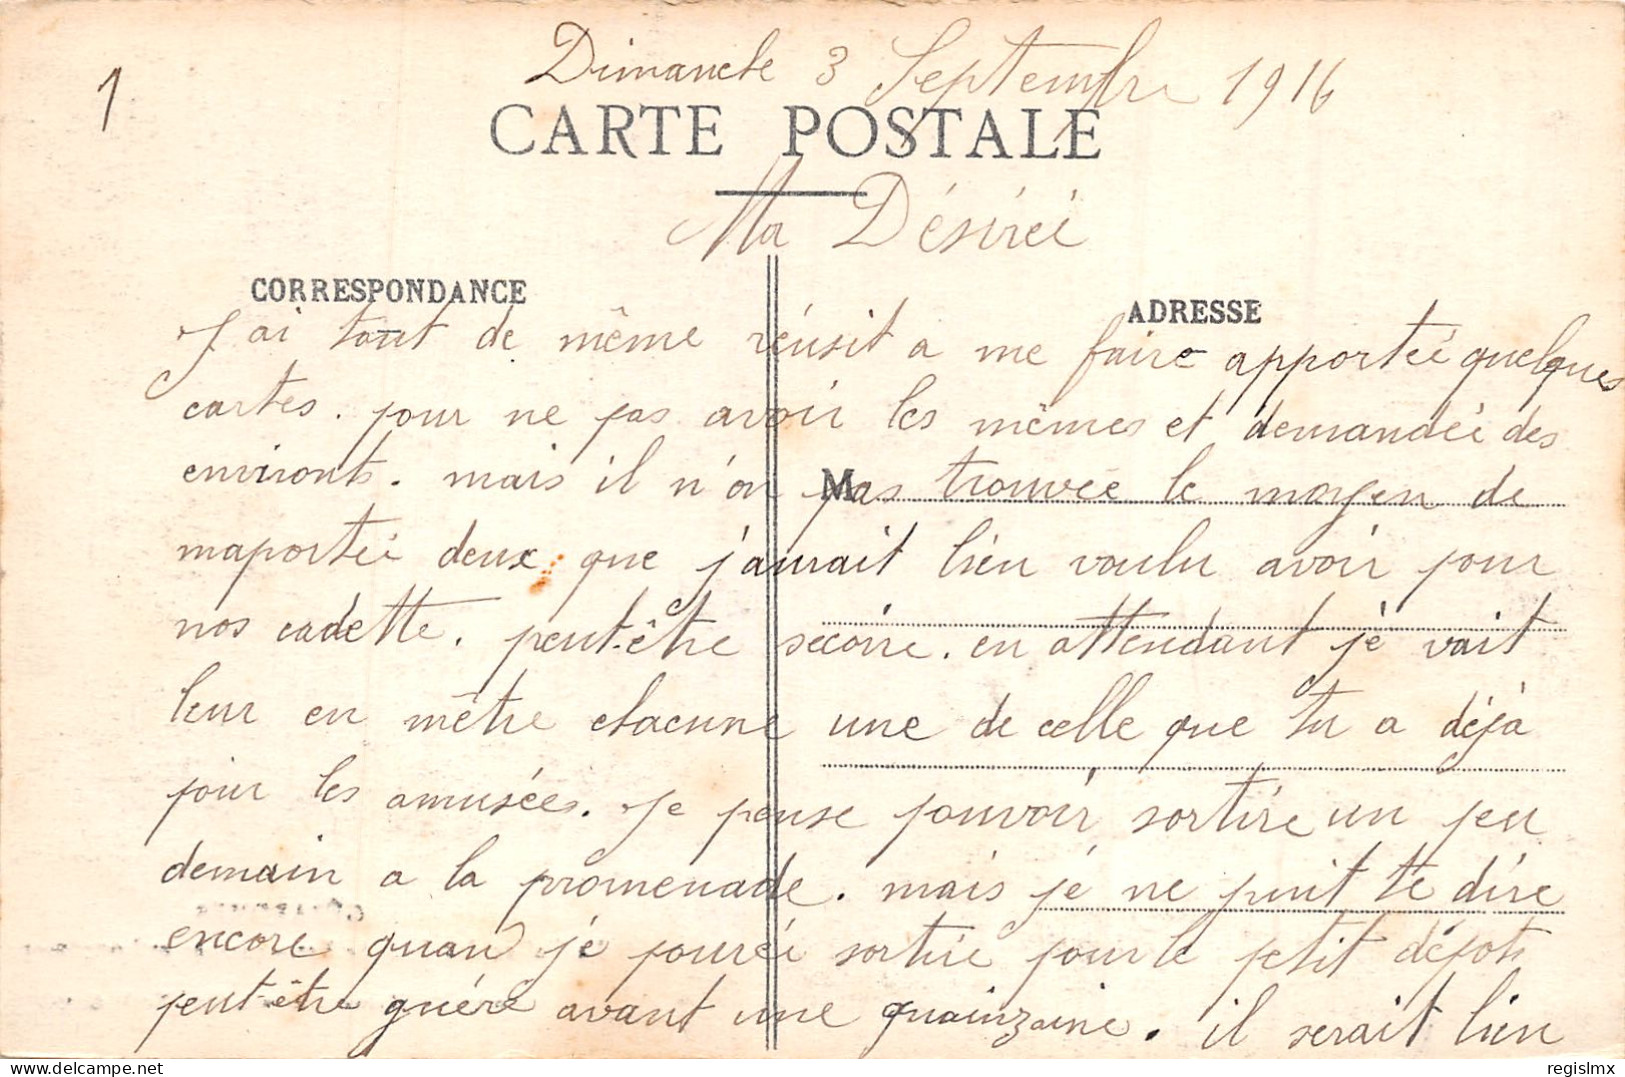 1
Dimanche 3 Septembre 1916
CARTE POSTALE
Ma Désirée
CORRESPONDANCE
ADRESSE
J'ai tout de même réusit a me faire apportéé quelques
cartes. pour ne pas avoir les mêmes et demandéé des
environts. mais il n'on pas trouvée le moyen de
M
maportéé deux que j'aurait bien voulu avoir pour
nos cadette. peut-être secoire. en attendant je vait
leur en mêtre chacune une de celle que tu a déjà
pour les amusées. Je pense pouvoir sortire un peu
demain a la promenade. mais je ne puit te dire
encore quan je pouréé sortir pour le petit dépots
peut-être guére avant une quainzaine. il serait bien
regislmx